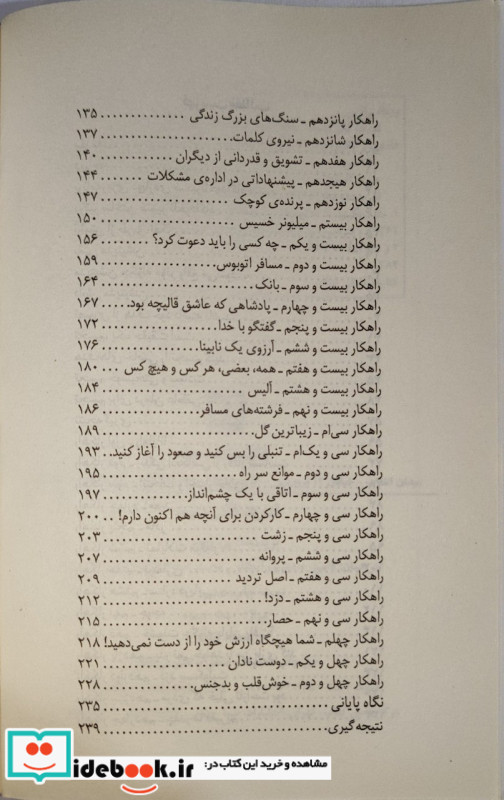 راهکار پانزدهم ـ سنگ‌های بزرگ زندگی .............. ۱۳۵
راهکار شانزدهم ـ نیروی کلمات...................... ۱۳۷
راهکار هفدهم ـ تشویق و قدردانی از دیگران ............ ۱۴۰
راهکار هیجدهم ـ پیشنهاداتی در اداره‌ی مشکلات ....... ۱۴۴
راهکار نوزدهم ـ پرنده‌ی کوچک ..................... ۱۴۷
راهکار بیستم ـ میلیونر خسیس ...................... ۱۵۰
راهکار بیست و یکم ـ چه کسی را باید دعوت کرد؟ ........ ۱۵۶
راهکار بیست و دوم ـ مسافر اتوبوس................... ۱۵۹
راهکار بیست و سوم ـ بانک.......................... ۱۶۴
راهکار بیست و چهارم ـ پادشاهی که عاشق قالیچه بود..... ۱۶۷
راهکار بیست و پنجم ـ گفتگو با خدا................... ۱۷۲
راهکار بیست و ششم ـ آرزوی یک نابینا................. ۱۷۶
راهکار بیست و هفتم ـ همه، بعضی، هر کس و هیچ کس ... ۱۸۰
راهکار بیست و هشتم ـ آلیس ........................ ۱۸۴
راهکار بیست و نهم ـ فرشته‌های مسافر................. ۱۸۶
راهکار سی‌ام ـ زیباترین گل.......................... ۱۸۹
راهکار سی و یک‌ام ـ تنبلی را بس کنید و صعود را آغاز کنید.. ۱۹۳
راهکار سی و دوم ـ موانع سر راه ...................... ۱۹۵
راهکار سی و سوم ـ اتاقی با یک چشم‌انداز.............. ۱۹۷
راهکار سی و چهارم ـ کارکردن برای آنچه هم اکنون دارم! .. ۲۰۰
راهکار سی و پنجم ـ زشت .......................... ۲۰۳
راهکار سی و ششم ـ پروانه .......................... ۲۰۷
راهکار سی و هفتم ـ اصل تردید ...................... ۲۰۹
راهکار سی و هشتم ـ دزد!........................... ۲۱۲
راهکار سی و نهم ـ حصار............................ ۲۱۵
راهکار چهلم ـ شما هیچگاه ارزش خود را از دست نمی‌دهید! ۲۱۸
راهکار چهل و یکم ـ دوست نادان ..................... ۲۲۱
راهکار چهل و دوم ـ خوش‌قلب و بدجنس............... ۲۲۸
نگاه پایانی ...................................... ۲۳۵
نتیجه‌گیری...................................... ۲۳۹
مشاهده و خرید این کتاب در:
idebook.ir